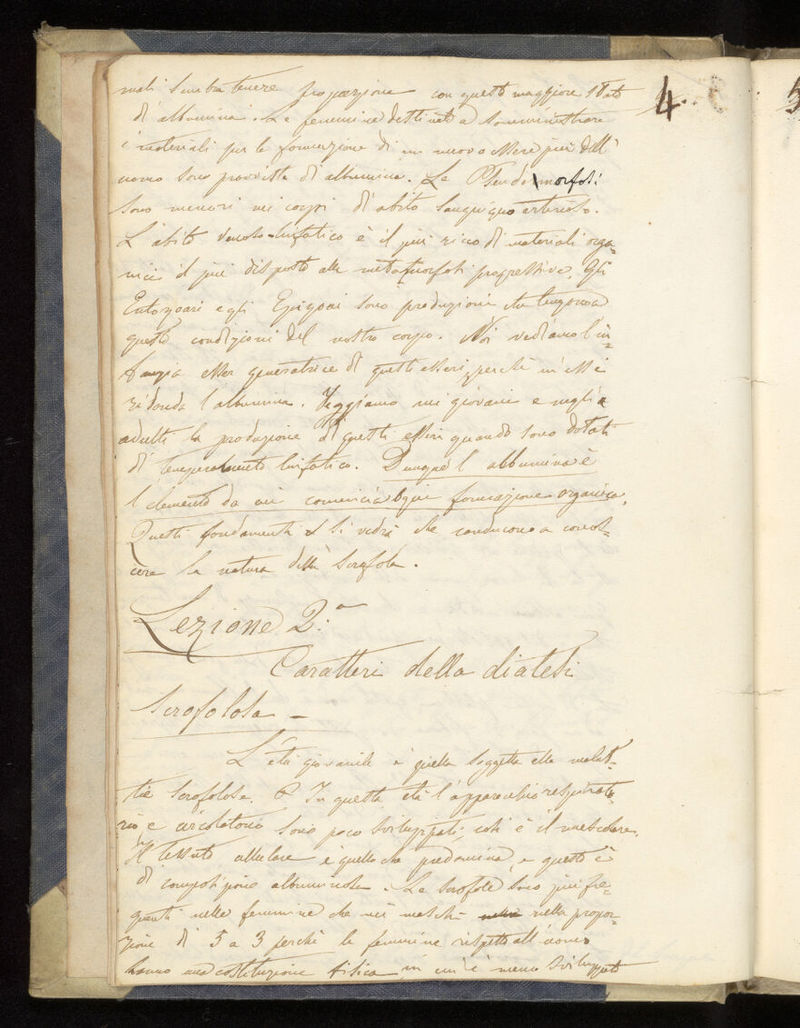 mali sembra tenere proporzione con questo maggiore stato
di albumina. Le femmine destinate a somministrare
i materiali per la formazione di un nuovo essere più dell'
uomo sono provviste di albumina. Le Pseudomorfosi
sono minori nei corpi di abito sanguigno arterioso.
L'abito venoso-linfatico è il più ricco di materiali orga-
nici il più disposto alle metamorfosi progressive. Gli
Entozoari e gli Epizoari sono produzioni che tengono a
queste condizioni del nostro corpo. Noi vediamo l'in-
fanzia esser generatrice di questi esseri, perchè in essi
ridonda l'albumina. Veggiamo nei giovani e negli
adulti la produzione di questi esseri quando sono dotati
di temperamento linfatico. Dunque l'albumina è
l'elemento da cui comincia ogni formazione organica.
Questi fondamenti si vedrà che conducono a conos-
cere la natura della scrofola.
Lezione 2.a
Caratteri della diatesi
scrofolosa –
L'età giovanile è quella soggetta alle malat-
tie scrofolose. In questa età l'apparecchio respirato-
rio e circolatorio sono poco sviluppati così è il muscolare.
Il tessuto cellulare è quello che predomina, e questo è
di composizione albuminosa. Le scrofole sono più fre-
quenti nelle femmine che nei maschi nella propor-
zione di 5 a 3 perchè le femmine rispetto all'uomo
hanno una costituzione fisica in cui è meno sviluppato
4
5